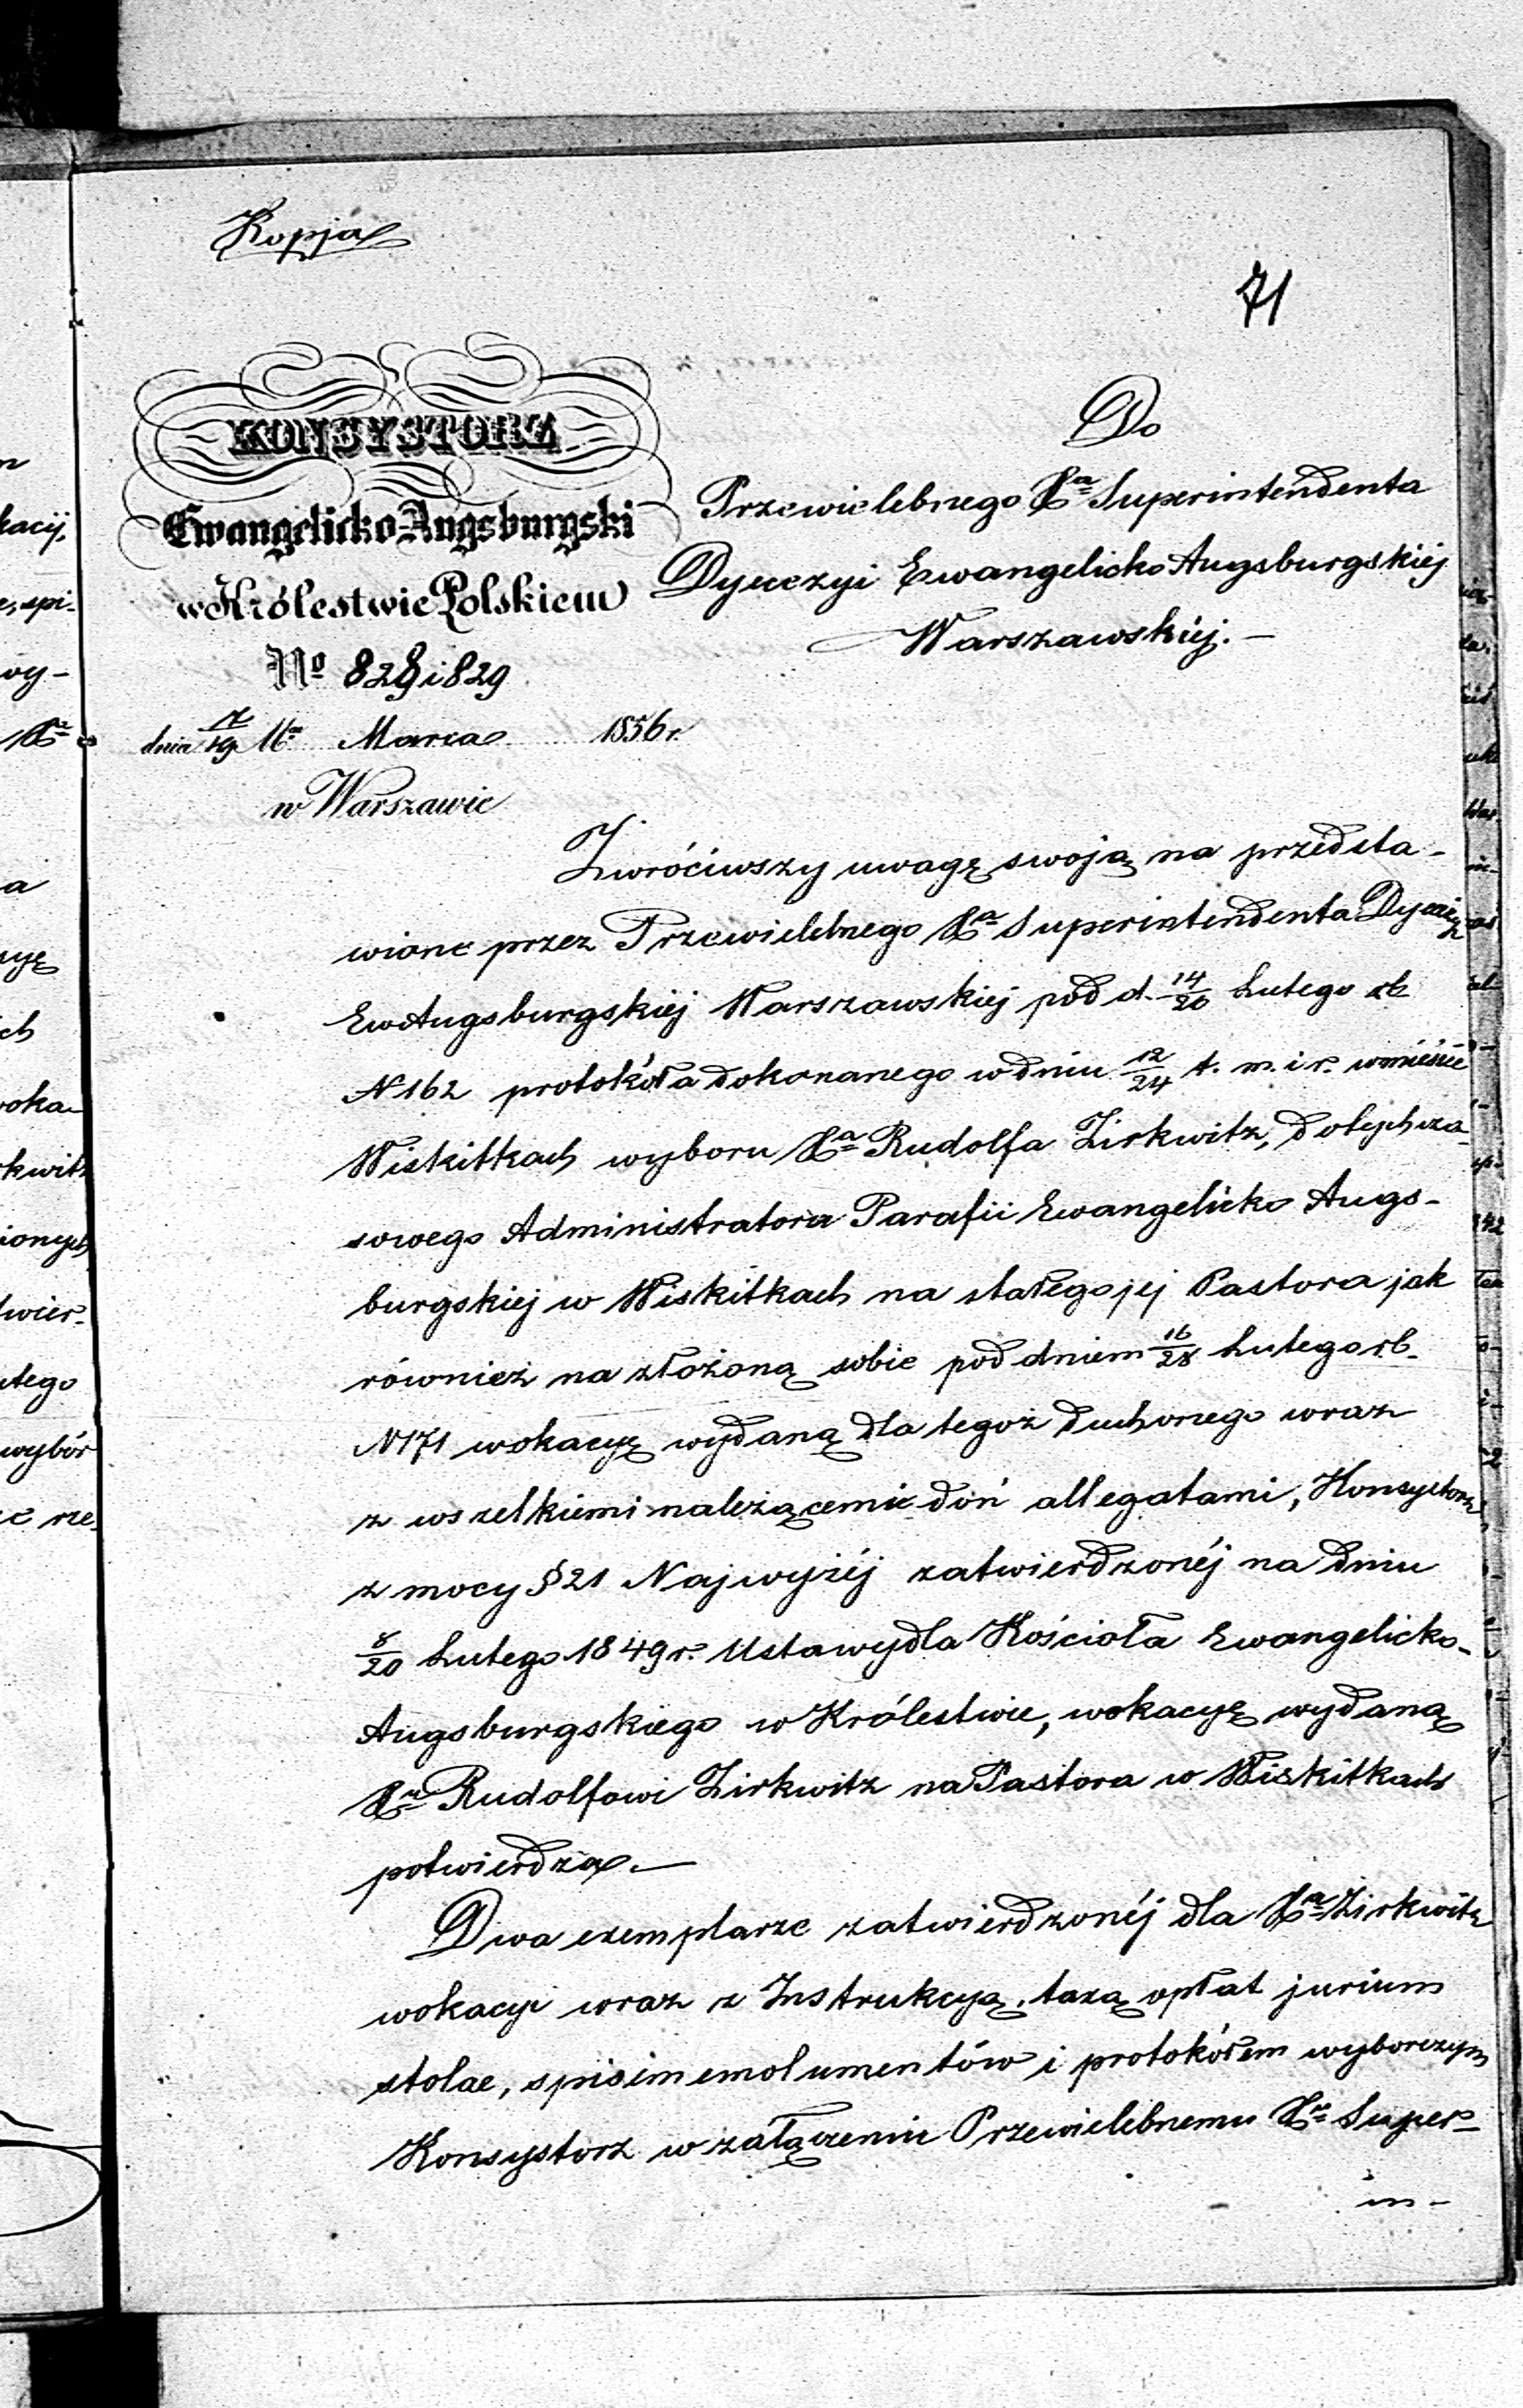 Kopja
71
KONSYSTORZ
Ewangelicko-Augsburgski
w Królestwie Polskiem
No 828 i 829
dnia 17/19 Mca Marca 1856 r.
w Warszawie
Do
Przewielebnego Xa Superintendenta
Dyecezyi Ewangelicko Augsburgskiej
Warszawskiej. —
Zwróciwszy uwagę swoją na przedsta-
wione przez Przewielebnego Xa Superintendenta Dyecezyi
Ew Augsburgskiéj Warszawskiej pod d. 14/26 Lutego rb
N 162 protokóła dokonanego w dniu 12/24 t. m. i r. w mieście
Wiskitkach wyboru Xa Rudolfa Zirkwitz, dotychcza-
sowego Administratora Parafii Ewangelicko Augs-
burgskiej w Wiskitkach na stałego jej Pastora jak
również na złożoną sobie pod dniem 16/28 Lutego rb.
N 171 wokacyę wydaną dla tegoż Duchonego wraz
z wszelkiemi należącemi doń allegatami, Konsystorz
z mocy § 21 Najwyżéj zatwierdzonéj na dniu
8/20 Lutego 1849 r. Ustawy dla Kościoła Ewangelicko-
Augsburgskiego w Królestwie, wokacyę wydaną
Xu Rudolfowi Zirkwitz na Pastora w Wiskitkach
potwierdza. —
Dwa exemplarze zatwierdzonéj dla Xa Zirkwitz
wokacyi wraz z Instrukcyą, taxą opłat jurium
stolae, spisem emolumentów i protokółem wyborczym
Konsystorz w załączeniu Przewielebnemu Xu Super-
in-